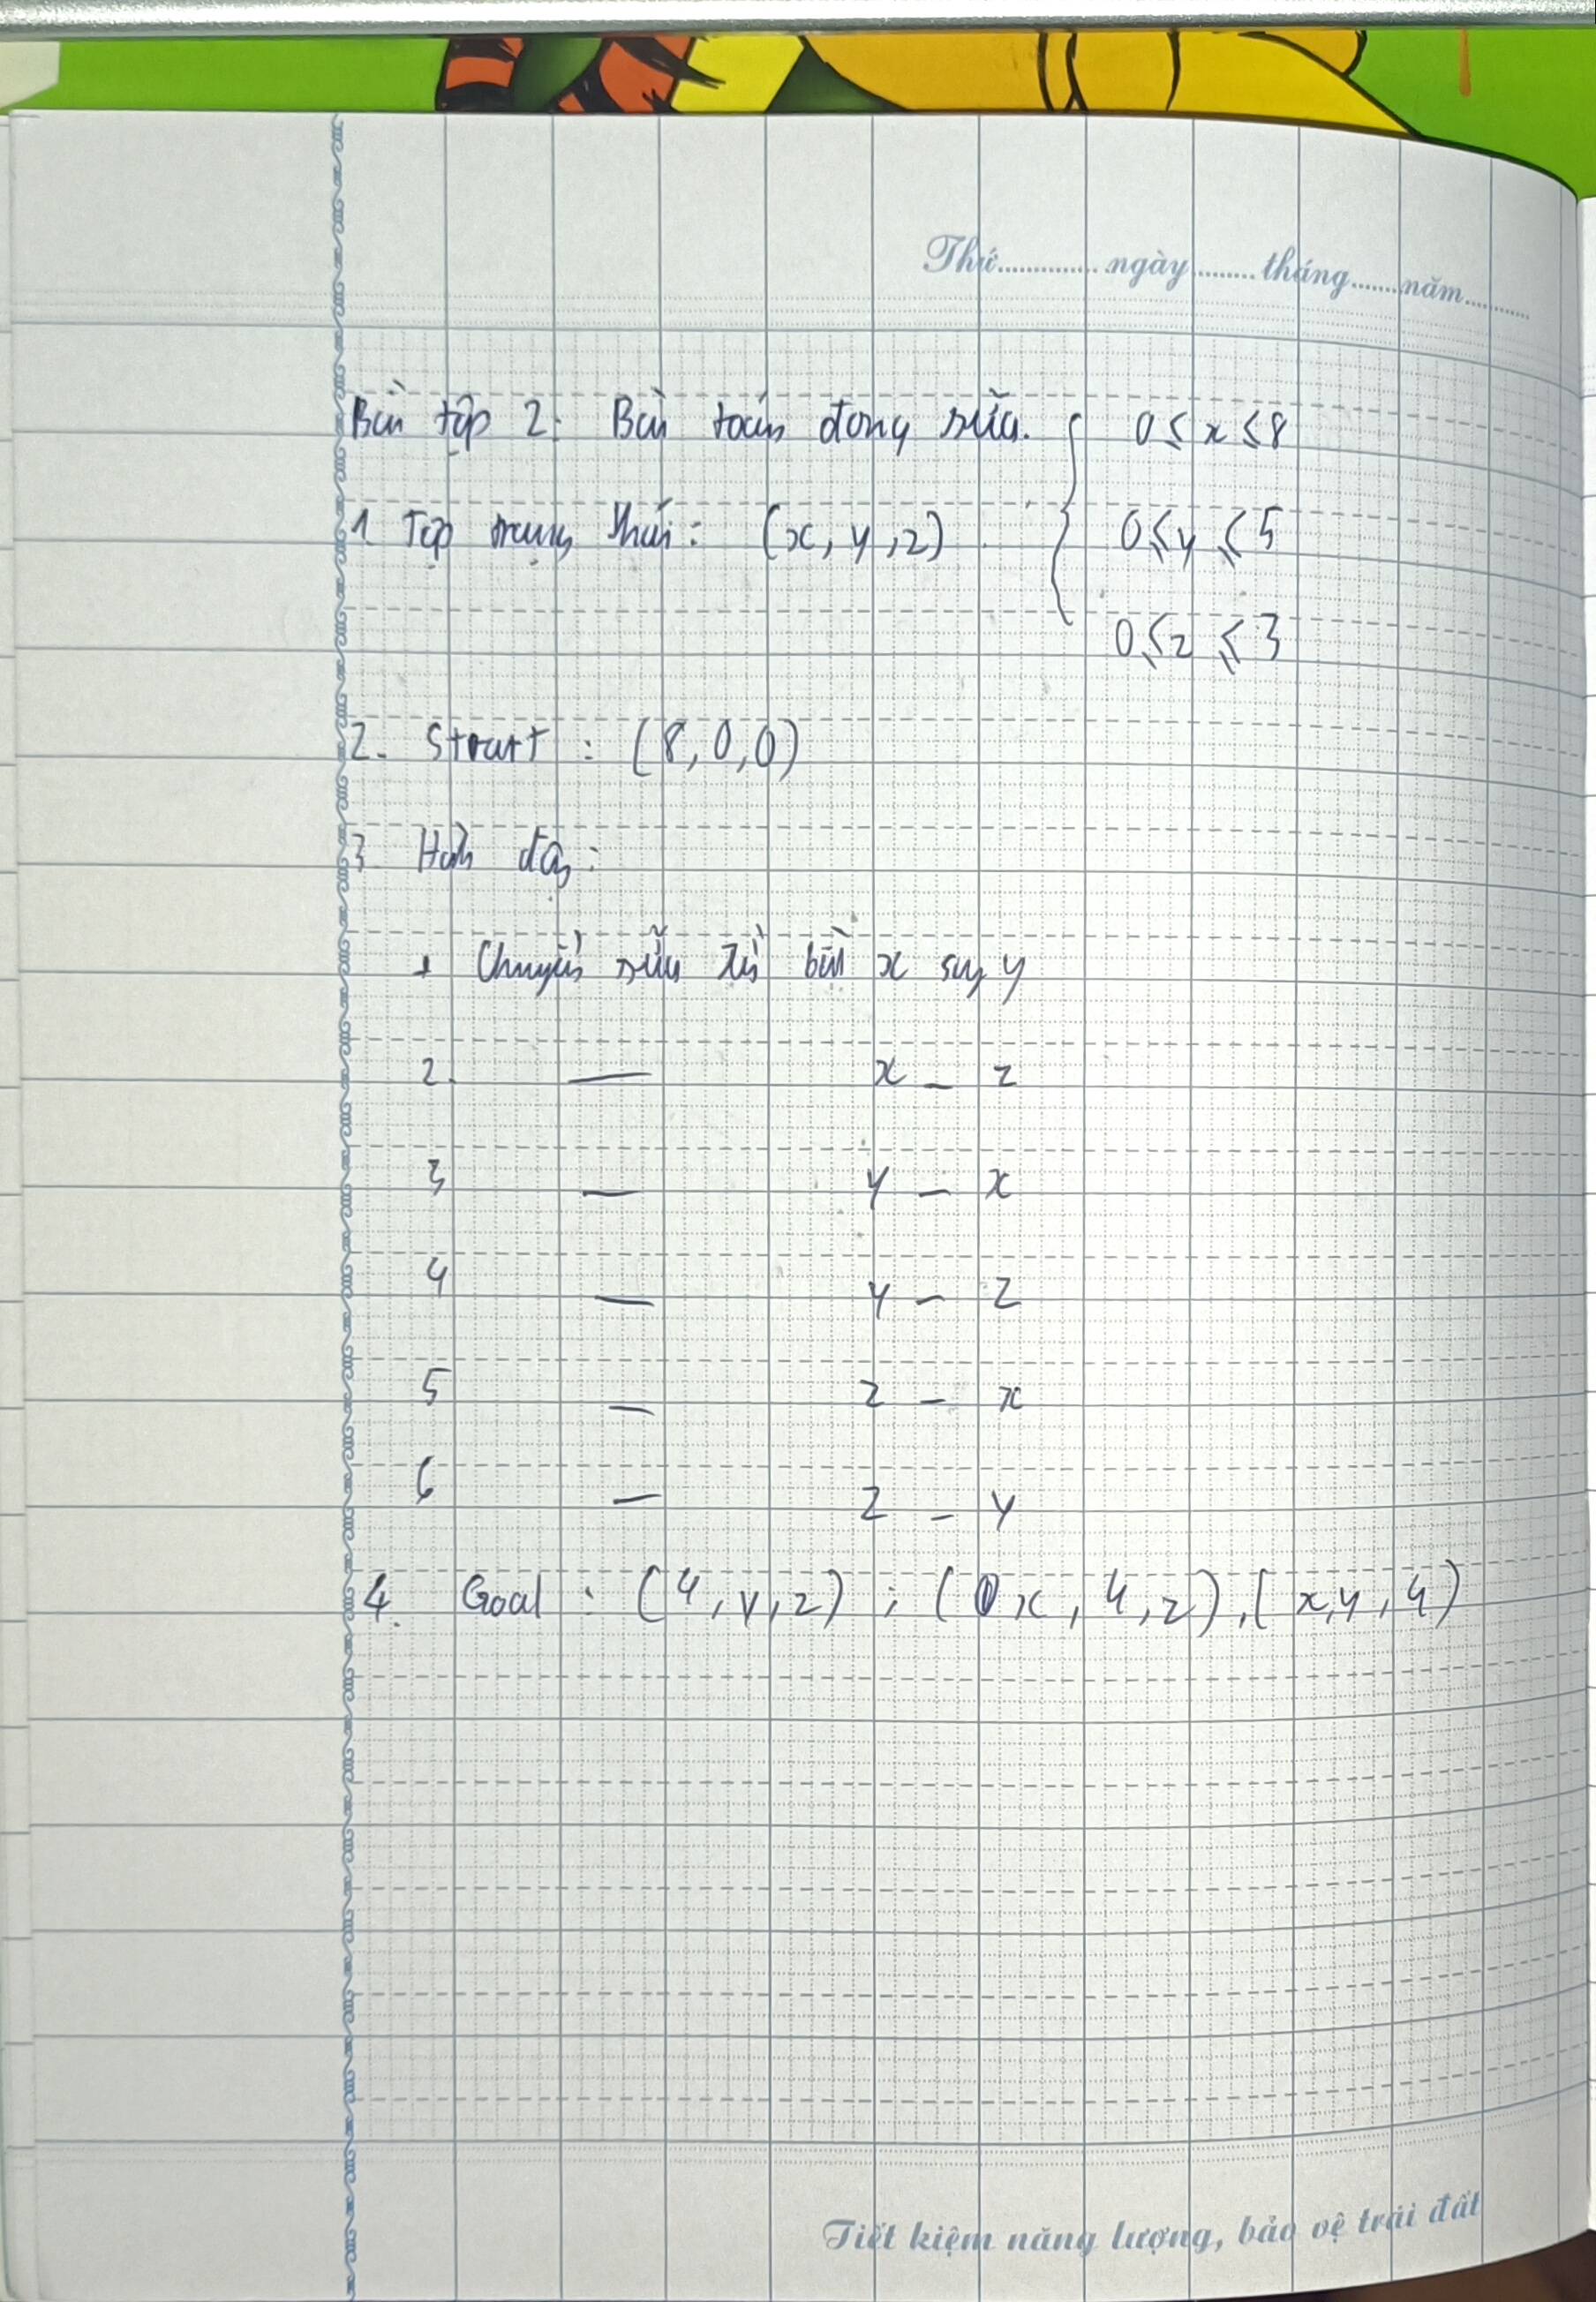 Thứ............ngày........tháng.......năm.........
Bài tập 2: Bài toán đong sữa. { 0 ≤ x ≤ 8
1. Tập trạng thái: (x, y, z). 0 ≤ y ≤ 5
0 ≤ z ≤ 3
2. Start : (8, 0, 0)
3. Hành động:
1 Chuyển sữa từ bình x sang y
2. — x – z
3 — y – x
4 — y – z
5 — z – x
6 — z – y
4. Goal : (4, y, z) ; (x, 4, z), (x, y, 4)
Tiết kiệm năng lượng, bảo vệ trái đất